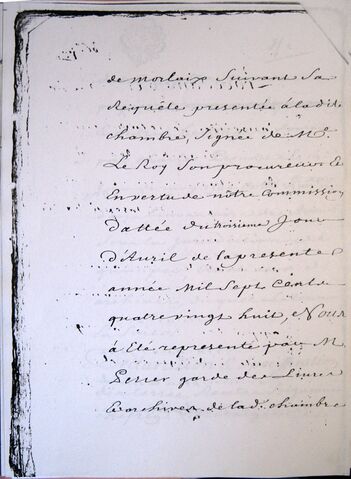 de morlaix Suivant Sa
Requête presentée à la dite
chambre, signée de Me
Le Roy Son procureur Et
En vertu de nôtre Commission
Dattée du troisieme Jour
D'Avril de la presente
année Mil Sept Cent
quatre vingt huit, Nous
à Eté representé par M
garde des Livres
Et archives de la de chambre